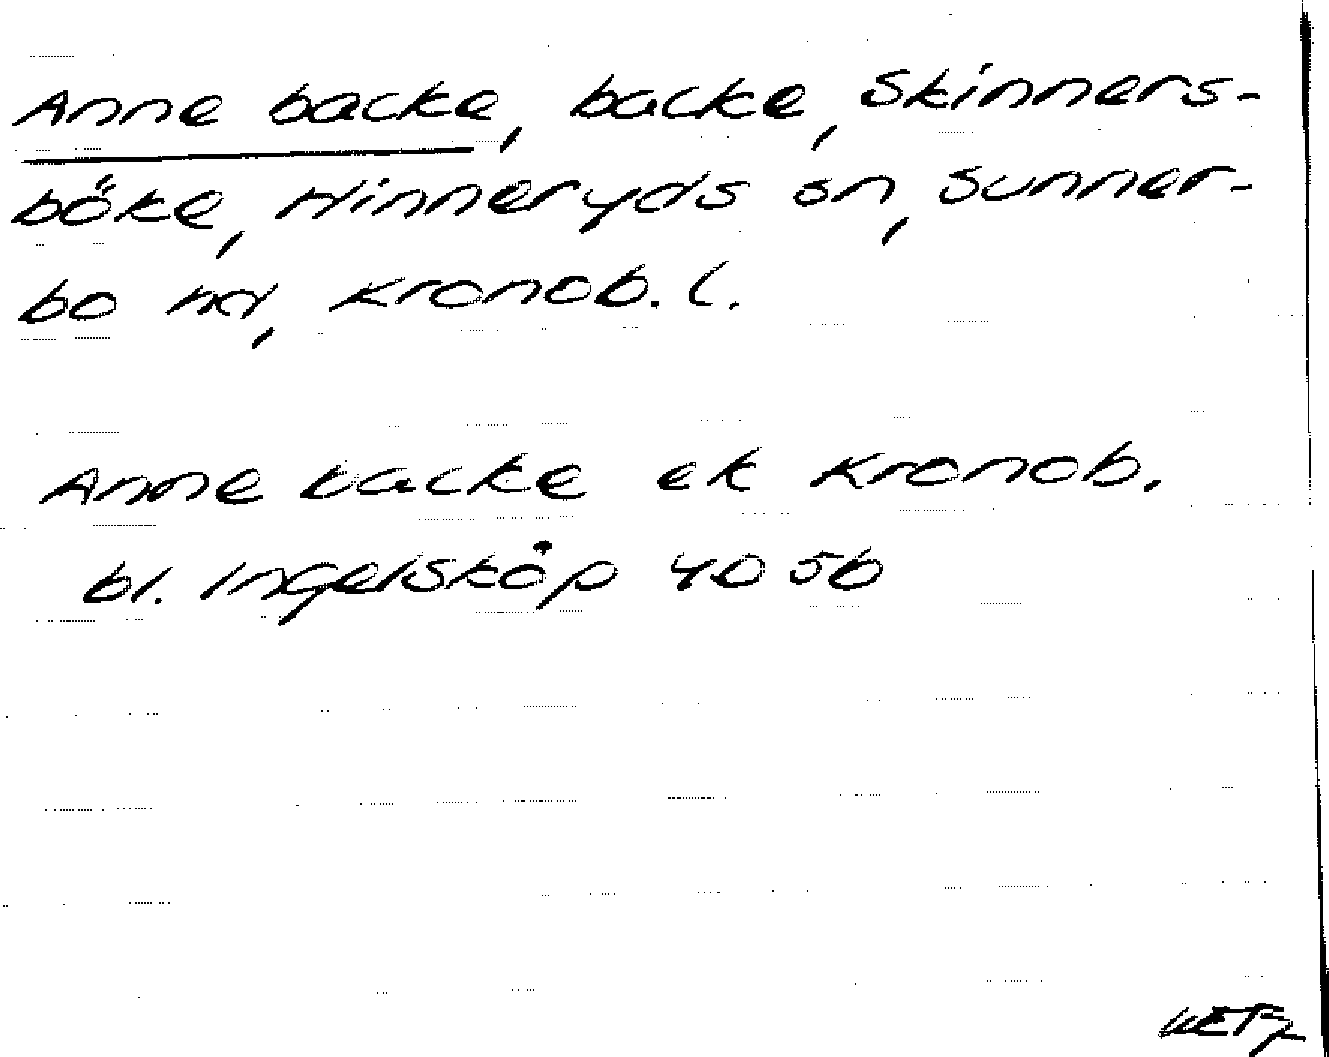 Anne backe, backe, Skinners-
böke, Hinneryds sn, Sunner-
bo hd, Kronob. l.
Anne backe ek Kronob.
bl. Ingelsköp 4D 5b